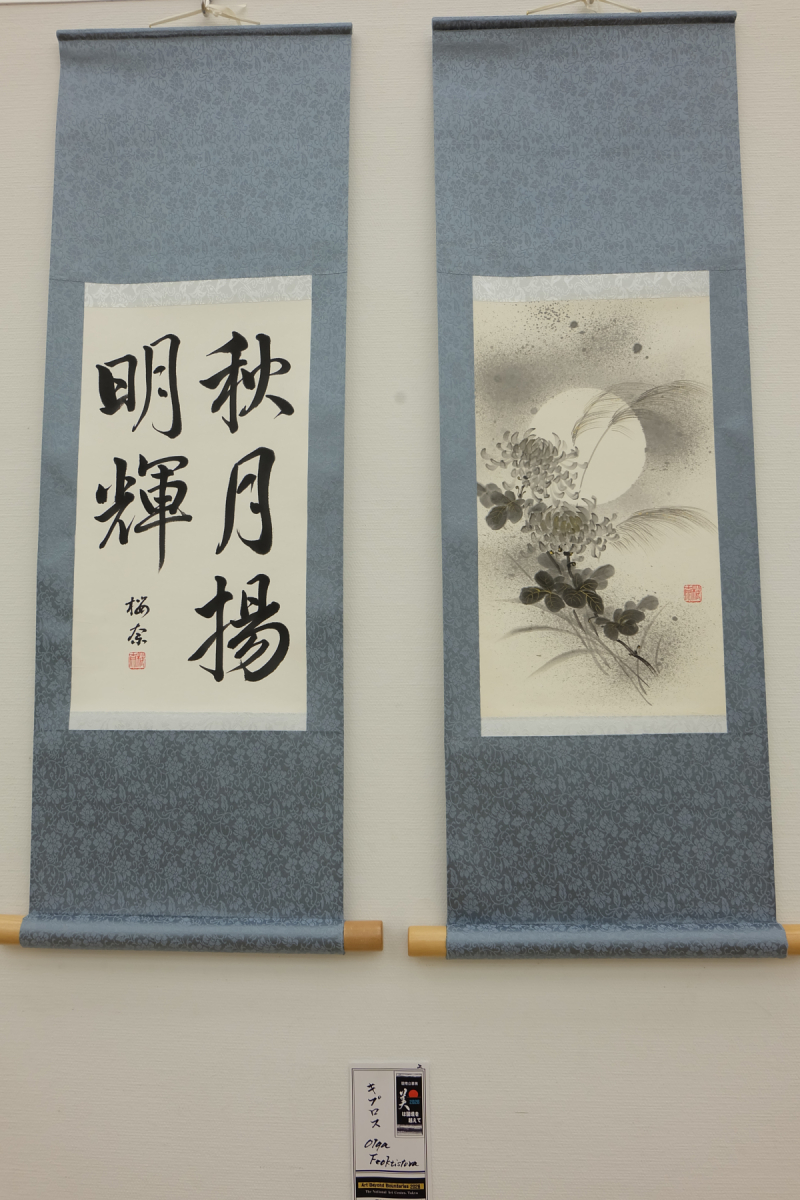 秋月揚
明輝
桜奈
キプロス
Olga
Feoktistova
美
は国境を
越えて
Art Beyond Boundaries
The National Art Center, Tokyo